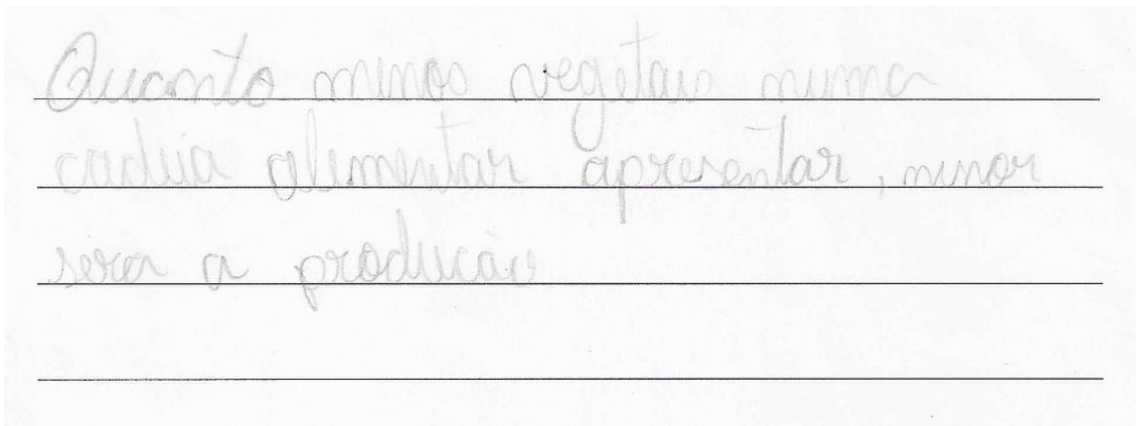 Quanto menos vegetais numa
cadeia alimentar apresentar, menor
sera a produção